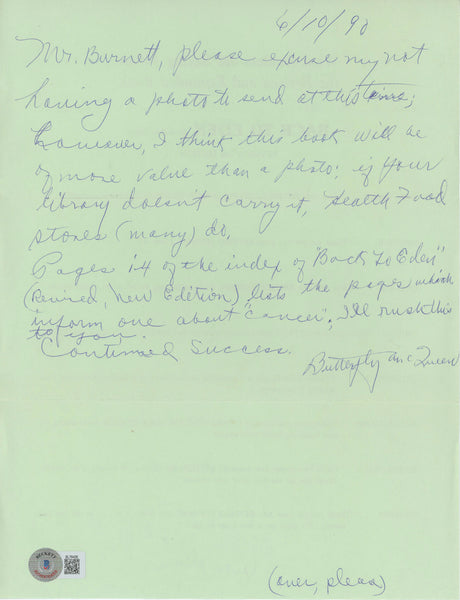 6/10/90
Mr. Burnett, please excuse my not
having a photo to send at this time;
however, I think this book will be
of more value than a photo; if your
library doesn't carry it, Health Food
stores (many) do.
Pages 14 of the index of "Back To Eden"
(Revised, New Edition) lists the pages which
inform one about "cancer". I'll rush this
to you.
Continued Success.
Butterfly McQueen
(over, please)
BECKETT